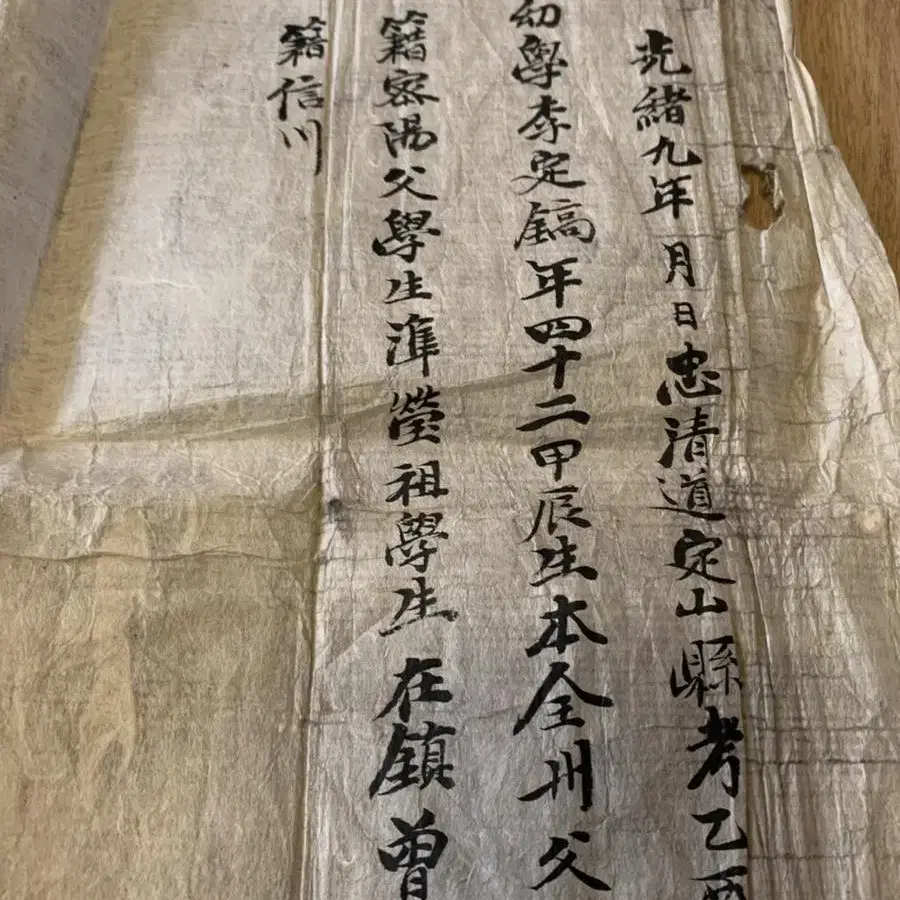 光緒九年 月 日忠清道定山縣考乙酉
幼學李定鎬年四十二甲辰生本全州父
籍密陽父學生準瑩祖學生 在鎮 曾
籍信川